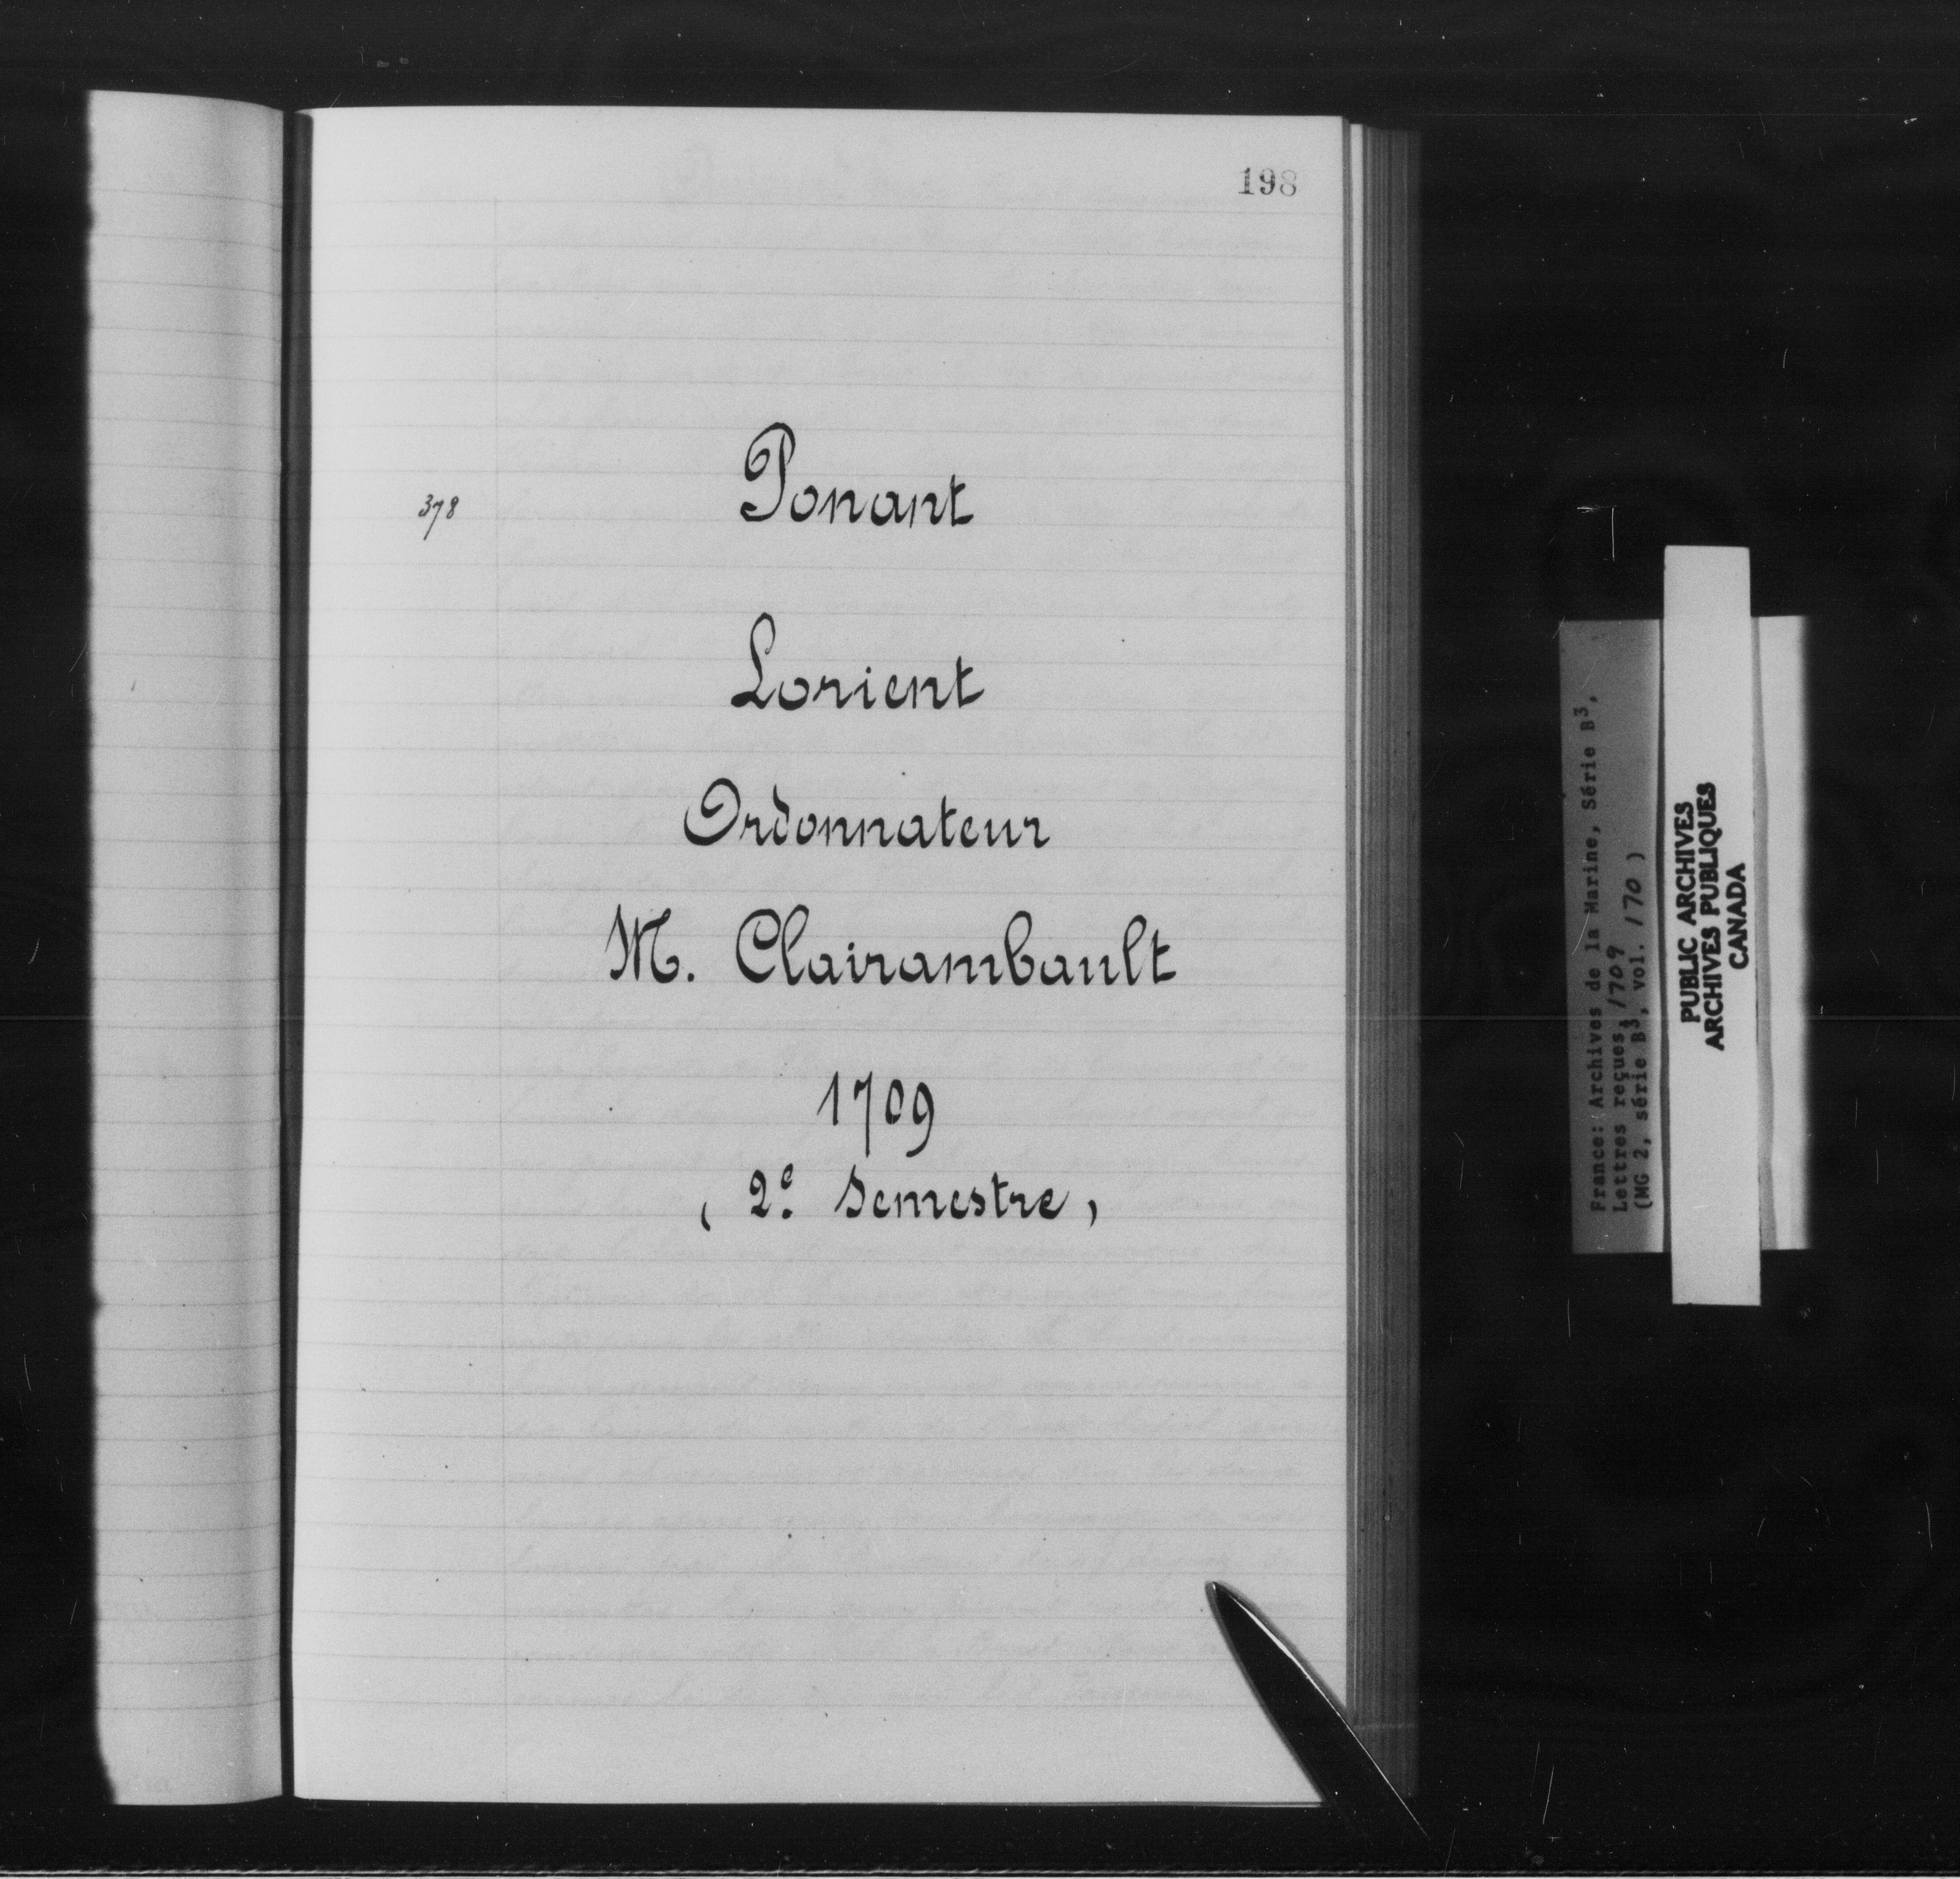 198
378
Ponant
Lorient
Ordonnateur
M. Clairambault
1709
( 2e. Semestre )
France: Archives de la Marine, Série B3,
Lettres reçues, 1709
(MG 2, série B3, vol. 170 )
PUBLIC ARCHIVES
ARCHIVES PUBLIQUES
CANADA